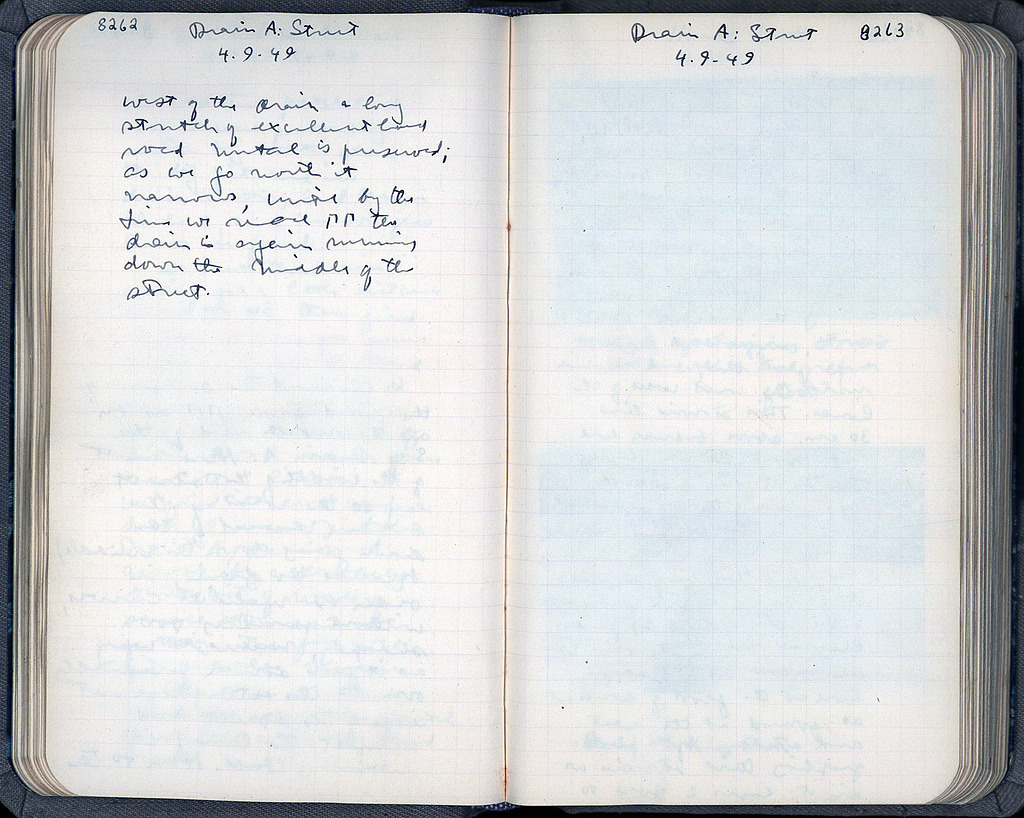 8262
Drain A: Street
4.9.49
west of the drain a long
stretch of excellent hard
road metal is preserved;
as we go north it
narrows, until by the
time we reach ΠΠ the
drain is again running
down the middle of the
street.
Drain A: Street
8263
4.9.49